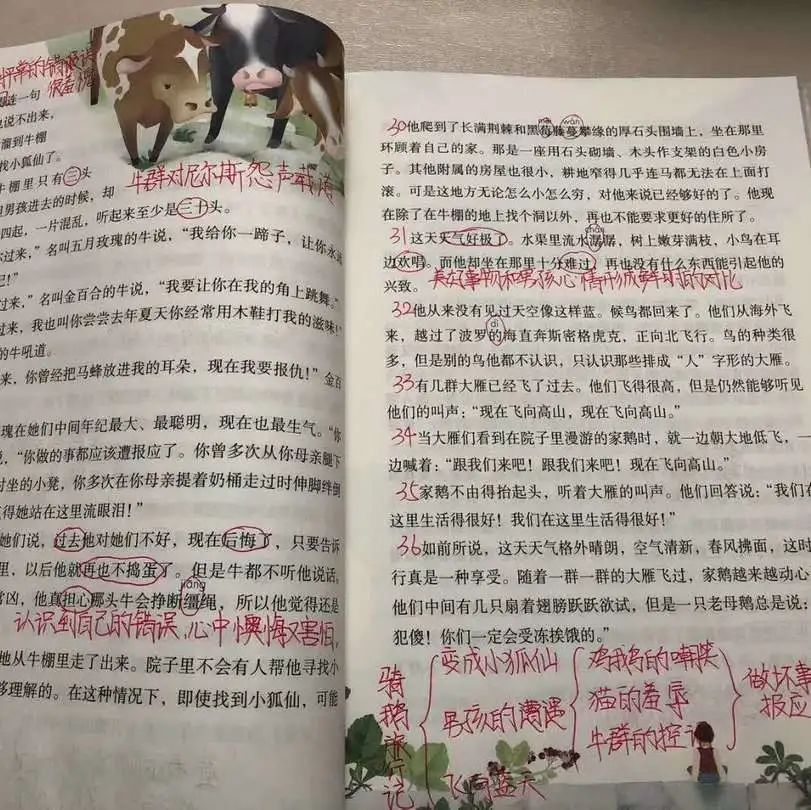 很羞愧
连一句
说不出来,
溜到牛棚
找小狐仙了。
牛棚里只有三头
牛群对尼尔斯怨声载道
男孩进去的时候,却
四起,一片混乱,听起来至少是三十头。
过来,”名叫五月玫瑰的牛说,“我给你一蹄子,让你永
吧!”
过来,”名叫金百合的牛说,“我要让你在我的角上跳舞。”
过来,我也叫你尝尝去年夏天你经常用木鞋打我的滋味!”
的牛吼道。
来,你曾经把马蜂放进我的耳朵,现在我要报仇!”金百
瑰在她们中间年纪最大、最聪明,现在也最生气。“你
说,“你做的事都应该遭报应了。你曾多次从你母亲腿下
时坐的小凳,你多次在你母亲提着奶桶走过时伸脚绊倒
得她站在这里流眼泪!”
她们说,过去他对她们不好,现在后悔了,只要告诉
里,以后他就再也不捣蛋了。但是牛都不听他说话。
jiāng
凶,他真担心哪头牛会挣断缰绳,所以他觉得还是
认识到自己的错误,心中懊悔又害怕,
地从牛棚里走了出来。院子里不会有人帮他寻找小
够理解的。在这种情况下,即使找到小狐仙,可能
méi wàn
30他爬到了长满荆棘和黑莓藤蔓攀缘的厚石头围墙上,坐在那里
环顾着自己的家。那是一座用石头砌墙、木头作支架的白色小房
子。其他附属的房屋也很小,耕地窄得几乎连马都无法在上面打
滚。可是这地方无论怎么小怎么穷,对他来说已经够好的了。他现
在除了在牛棚的地上找个洞以外,再也不能要求更好的住所了。
31这天天气好极了。水渠里流水潺潺,树上嫩芽满枝,小鸟在耳
边欢唱。而他却坐在那里十分难过,再也没有什么东西能引起他的
美好事物和男孩心情形成鲜明的对比
兴致。
32他从来没有见过天空像这样蓝。候鸟都回来了。他们从海外飞
dì
来,越过了波罗的海直奔斯密格虎克,正向北飞行。鸟的种类很
多,但是别的鸟他都不认识,只认识那些排成“人”字形的大雁。
33有几群大雁已经飞了过去。他们飞得很高,但是仍然能够听见
他们的叫声:“现在飞向高山,现在飞向高山。”
34当大雁们看到在院子里漫游的家鹅时,就一边朝大地低飞,一
边喊着:“跟我们来吧!跟我们来吧!现在飞向高山。”
35家鹅不由得抬起头,听着大雁的叫声。他们回答说:“我们在
这里生活得很好!我们在这里生活得很好!”
36如前所说,这天天气格外晴朗,空气清新,春风拂面,这时
行真是一种享受。随着一群一群的大雁飞过,家鹅越来越动心
他们中间有几只扇着翅膀跃跃欲试,但是一只老母鹅总是说:
犯傻!你们一定会受冻挨饿的。”
骑鹅旅行记
变成小狐仙
男孩的遭遇
飞向蓝天
鸡鹅的嘲笑
猫的羞辱
牛群的控
做坏事
报应